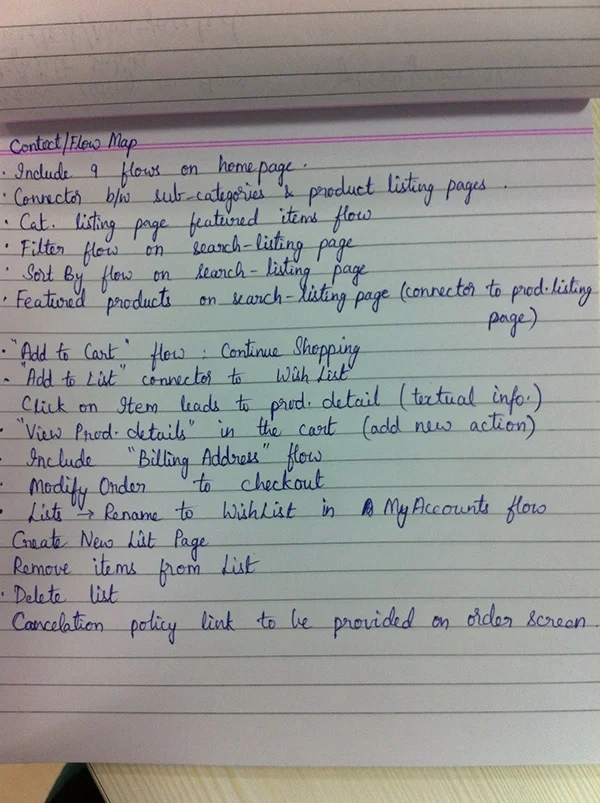 Contect/Flow Map
· Include 9 flows on homepage.
· Connector b/w sub-categories & product listing pages.
· Cat. listing page featured items flow
· Filter flow on search-listing page
· Sort By flow on search-listing page
· Featured products on search-listing page (connector to prod. listing
page)
· "Add to Cart" flow : Continue Shopping
· "Add to List" connector to Wish List
Click on Item leads to prod. detail (textual info.)
· "View Prod. details" in the cart (add new action)
· Include "Billing Address" flow
· Modify Order to checkout
· Lists → Rename to WishList in MyAccounts flow
Create New List Page
Remove items from List
· Delete list
Cancelation policy link to be provided on order screen.